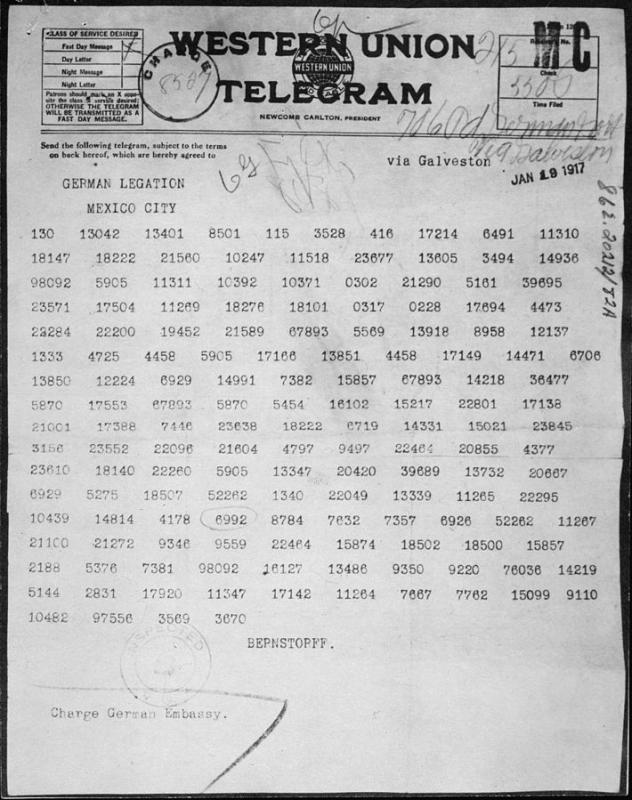 CLASS OF SERVICE DESIRED
Fast Day Message
Day Letter
Night Message
Night Letter
Patrons should mark an X oppo-
site the class of service desired;
OTHERWISE THE TELEGRAM
WILL BE TRANSMITTED AS A
FAST DAY MESSAGE.
CHARGE
WESTERN UNION
WESTERN UNION
TELEGRAM
NEWCOMB CARLTON, PRESIDENT
MC
Check
Time Filed
Send the following telegram, subject to the terms
on back hereof, which are hereby agreed to
via Galveston
JAN 19 1917
GERMAN LEGATION
MEXICO CITY
130 13042 13401 8501 115 3528 416 17214 6491 11310
18147 18222 21560 10247 11518 23677 13605 3494 14936
98092 5905 11311 10392 10371 0302 21290 5161 39695
23571 17504 11269 18276 18101 0317 0228 17694 4473
23284 22200 19452 21589 67893 5569 13918 8958 12137
1333 4725 4458 5905 17166 13851 4458 17149 14471 6706
13850 12224 6929 14991 7382 15857 67893 14218 36477
5870 17553 67893 5870 5454 16102 15217 22801 17138
21001 17388 7446 23638 18222 6719 14331 15021 23845
3156 23552 22096 21604 4797 9497 22464 20855 4377
23610 18140 22260 5905 13347 20420 39689 13732 20667
6929 5275 18507 52262 1340 22049 13339 11265 22295
10439 14814 4178 6992 8784 7632 7357 6926 52262 11267
21100 21272 9346 9559 22464 15874 18502 18500 15857
2188 5376 7381 98092 16127 13486 9350 9220 76036 14219
5144 2831 17920 11347 17142 11264 7667 7762 15099 9110
10482 97556 3569 3670
BERNSTORFF.
INSPECTED
Charge German Embassy.